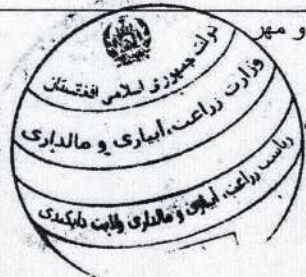 و مهر
دولت جمهوری اسلامی افغانستان
وزارت زراعت، آبیاری و مالداری
ریاست زراعت، آبیاری و مالداری ولایت دایکندی